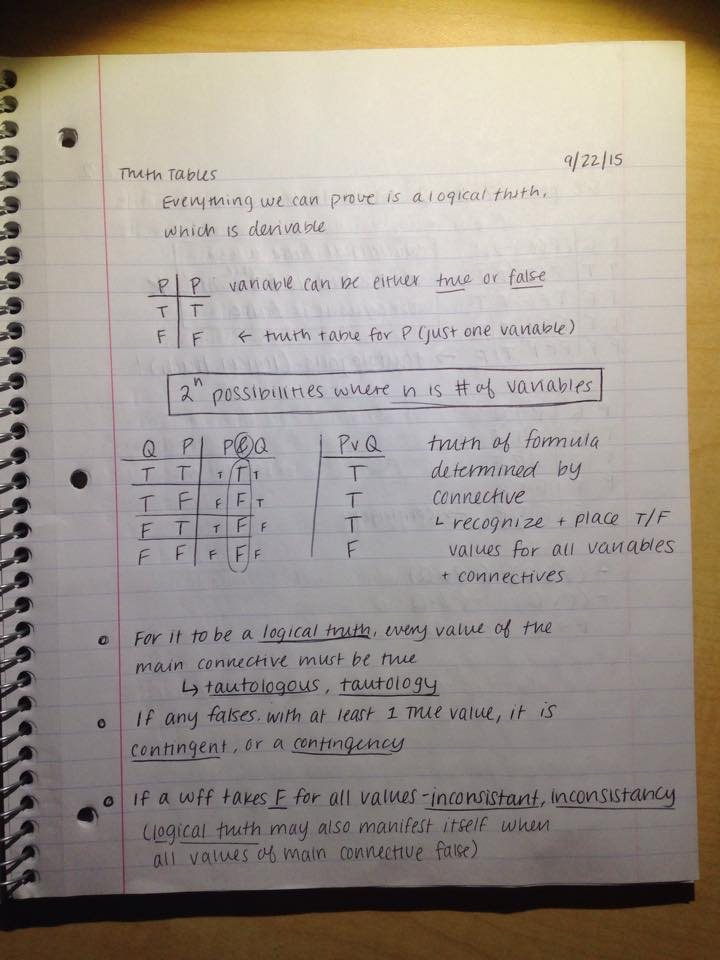 9/22/15
Truth Tables
Everything we can prove is a logical truth,
which is derivable
P | P variable can be either true or false
T | T
F | F ← truth table for P (just one variable)
2ⁿ possibilities where n is # of variables
Q P | P & Q | P v Q truth of formula
T T | T T T | T determined by
T F | F F T | T connective
F T | T F F | T ↳ recognize + place T/F
F F | F F F | F values for all variables
+ connectives
• For it to be a logical truth, every value of the
main connective must be true
↳ tautologous, tautology
• If any falses. with at least 1 True value, it is
contingent, or a contingency
• If a wff takes F for all values - inconsistant, inconsistancy
(logical truth may also manifest itself when
all values of main connective false)